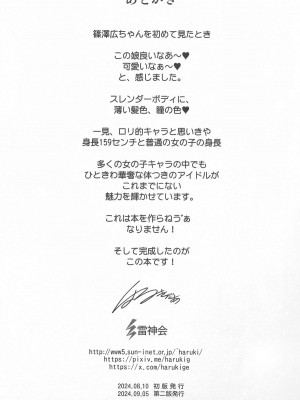 あとがき
篠澤広ちゃんを初めて見たとき
この娘良いなあ～♥
可愛いなぁ～♥
と、感じました。
スレンダーボディに、
薄い髪色、瞳の色♥
一見、ロリ的キャラと思いきや
身長159センチと普通の女の子の身長
多くの女の子キャラの中でも
ひときわ華奢な体つきのアイドルが
これまでにない
魅力を輝かせています。
これは本を作らねゔぁ
なりません！
そして完成したのが
この本です！
はるきゲ
雷神会
http://www5.sun-inet.or.jp/~haruki/
https://pixiv.me/harukig
https://x.com/harukige
2024.08.10 初版発行
2024.09.05 第二版発行